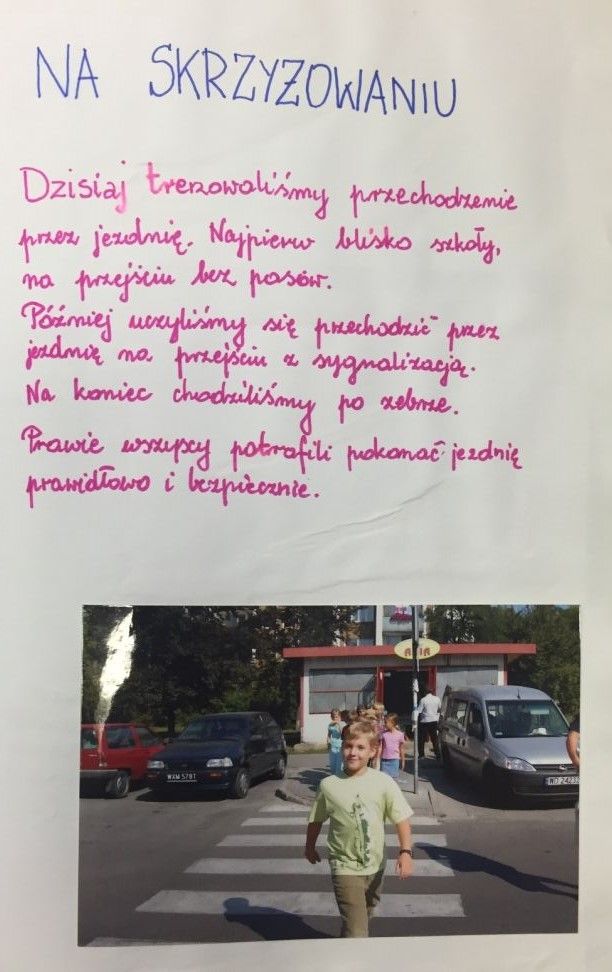 NA SKRZYZOWANIU
Dzisiaj trenowaliśmy przechodzenie
przez jezdnię. Najpierw blisko szkoły,
na przejściu bez pasów.
Później uczyliśmy się przechodzić przez
jezdnię na przejściu z sygnalizacją.
Na koniec chodziliśmy po zebrze.
Prawie wszyscy potrafili pokonać jezdnię
prawidłowo i bezpiecznie.
WXM 5797